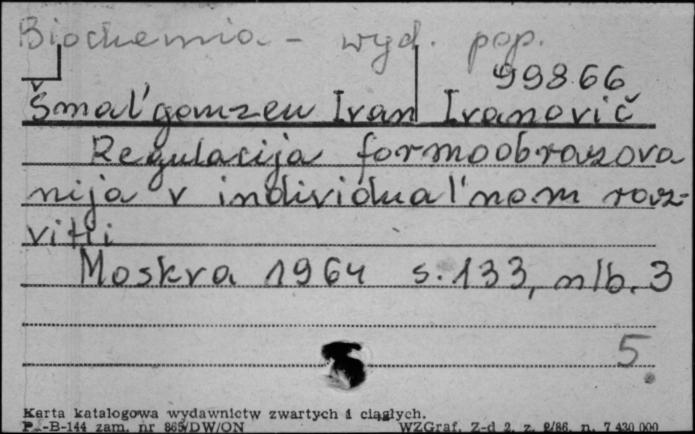 Biochemia - wyd. pop.
99866
Šmal'gauzen Ivan Ivanovič
Regulacija formoobrazova
nija v individual'nom raz-
vitii
Moskva 1964 s. 133, nlb. 3
5.
Karta katalogowa wydawnictw zwartych i ciągłych.
P.-B-144 zam. nr 865/DW/ON WZGraf. Z-d 2, z. 2/86, n. 7 430 000